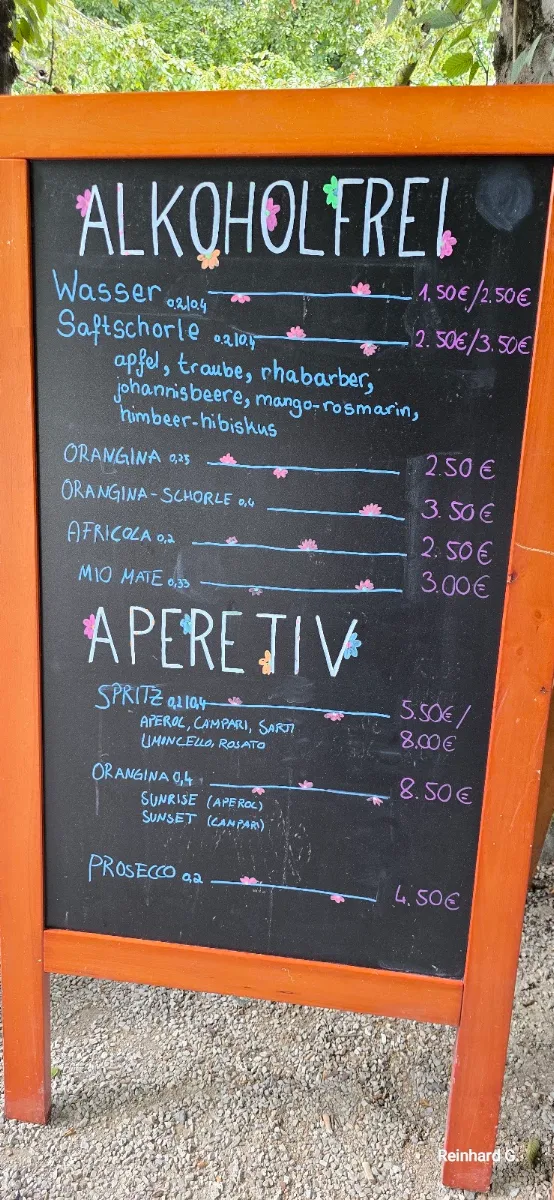 ALKOHOLFREI
Wasser 0.2|0.4 1.50€/2.50€
Saftschorle 0.2|0.4 2.50€/3.50€
apfel, traube, rhabarber,
johannisbeere, mango-rosmarin,
himbeer-hibiskus
ORANGINA 0,25 2.50€
ORANGINA-SCHORLE 0,4 3.50€
AFRICOLA 0.2 2.50€
MIO MATE 0,33 3.00€
APERETIV
SPRITZ 0,2|0,4 5.50€/
APEROL, CAMPARI, SARTI
LIMONCELLO, ROSATO 8.00€
ORANGINA 0,4 8.50€
SUNRISE (APEROL)
SUNSET (CAMPARI)
PROSECCO 0.2 4.50€
Reinhard G.